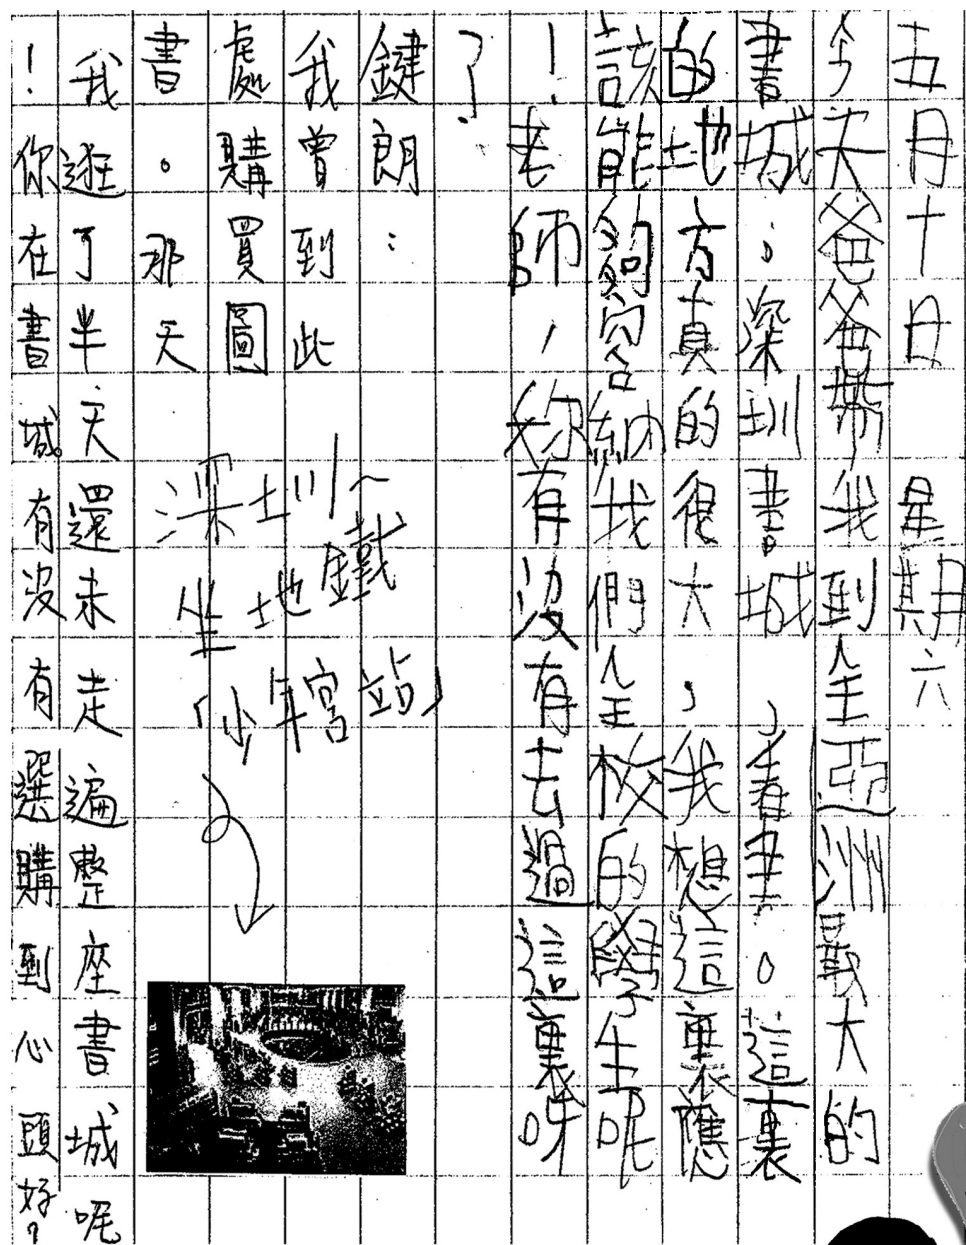 五月十日 星期六
今天爸爸帶我到全亞洲最大的
書城:深圳書城,看書。這裏
的地方真的很大,我想這裏應
該能夠容納我們全校的學生呢
!老師,妳有沒有去過這裏呀
?
鍵朗:
我曾到此
處購買圖
書。那天
我逛了半天還未走遍整座書城呢
!你在書城有沒有選購到心頭好?
深圳~
坐地鐵
「少年宮站」